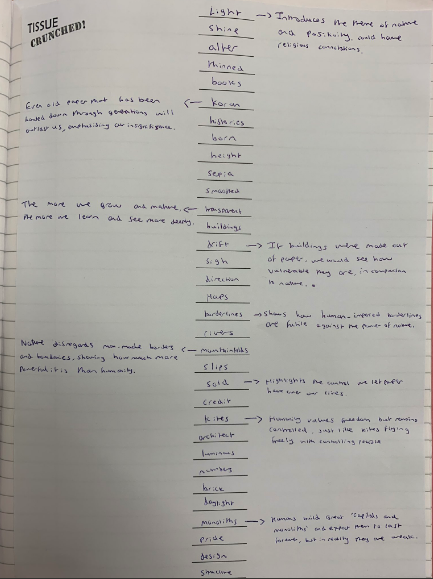 TISSUE
CRUNCHED!
Light → Introduces the theme of nature
and positivity, could have
religious connotations.
Shine
alter
thinned
books
Even old paper that has been
handed down through generations will
outlast us, emphasising our insignificance.
← Koran
histories
born
height
sepia
smoothed
The more we grow and mature,
the more we learn and see more deeply.
← transparent
buildings
drift → If buildings were made out
of paper, we would see how
vulnerable they are, in comparison
to nature.
sigh
direction
Maps
borderlines → Shows how human-imposed borderlines
are futile against the power of nature.
rivers
Nature disregards man-made borders
and boundaries, showing how much more
powerful it is than humanity.
← mountainfolds
slips
sold → Highlights the control we let paper
have over our lives.
credit
kites → Humanity values freedom but remains
controlled, just like kites flying
freely with controlling people
architect
luminous
numbers
brick
daylight
monoliths → Humans build great "capitals and
monoliths" and expect them to last
forever, but in reality they are weak.
pride
design
structure